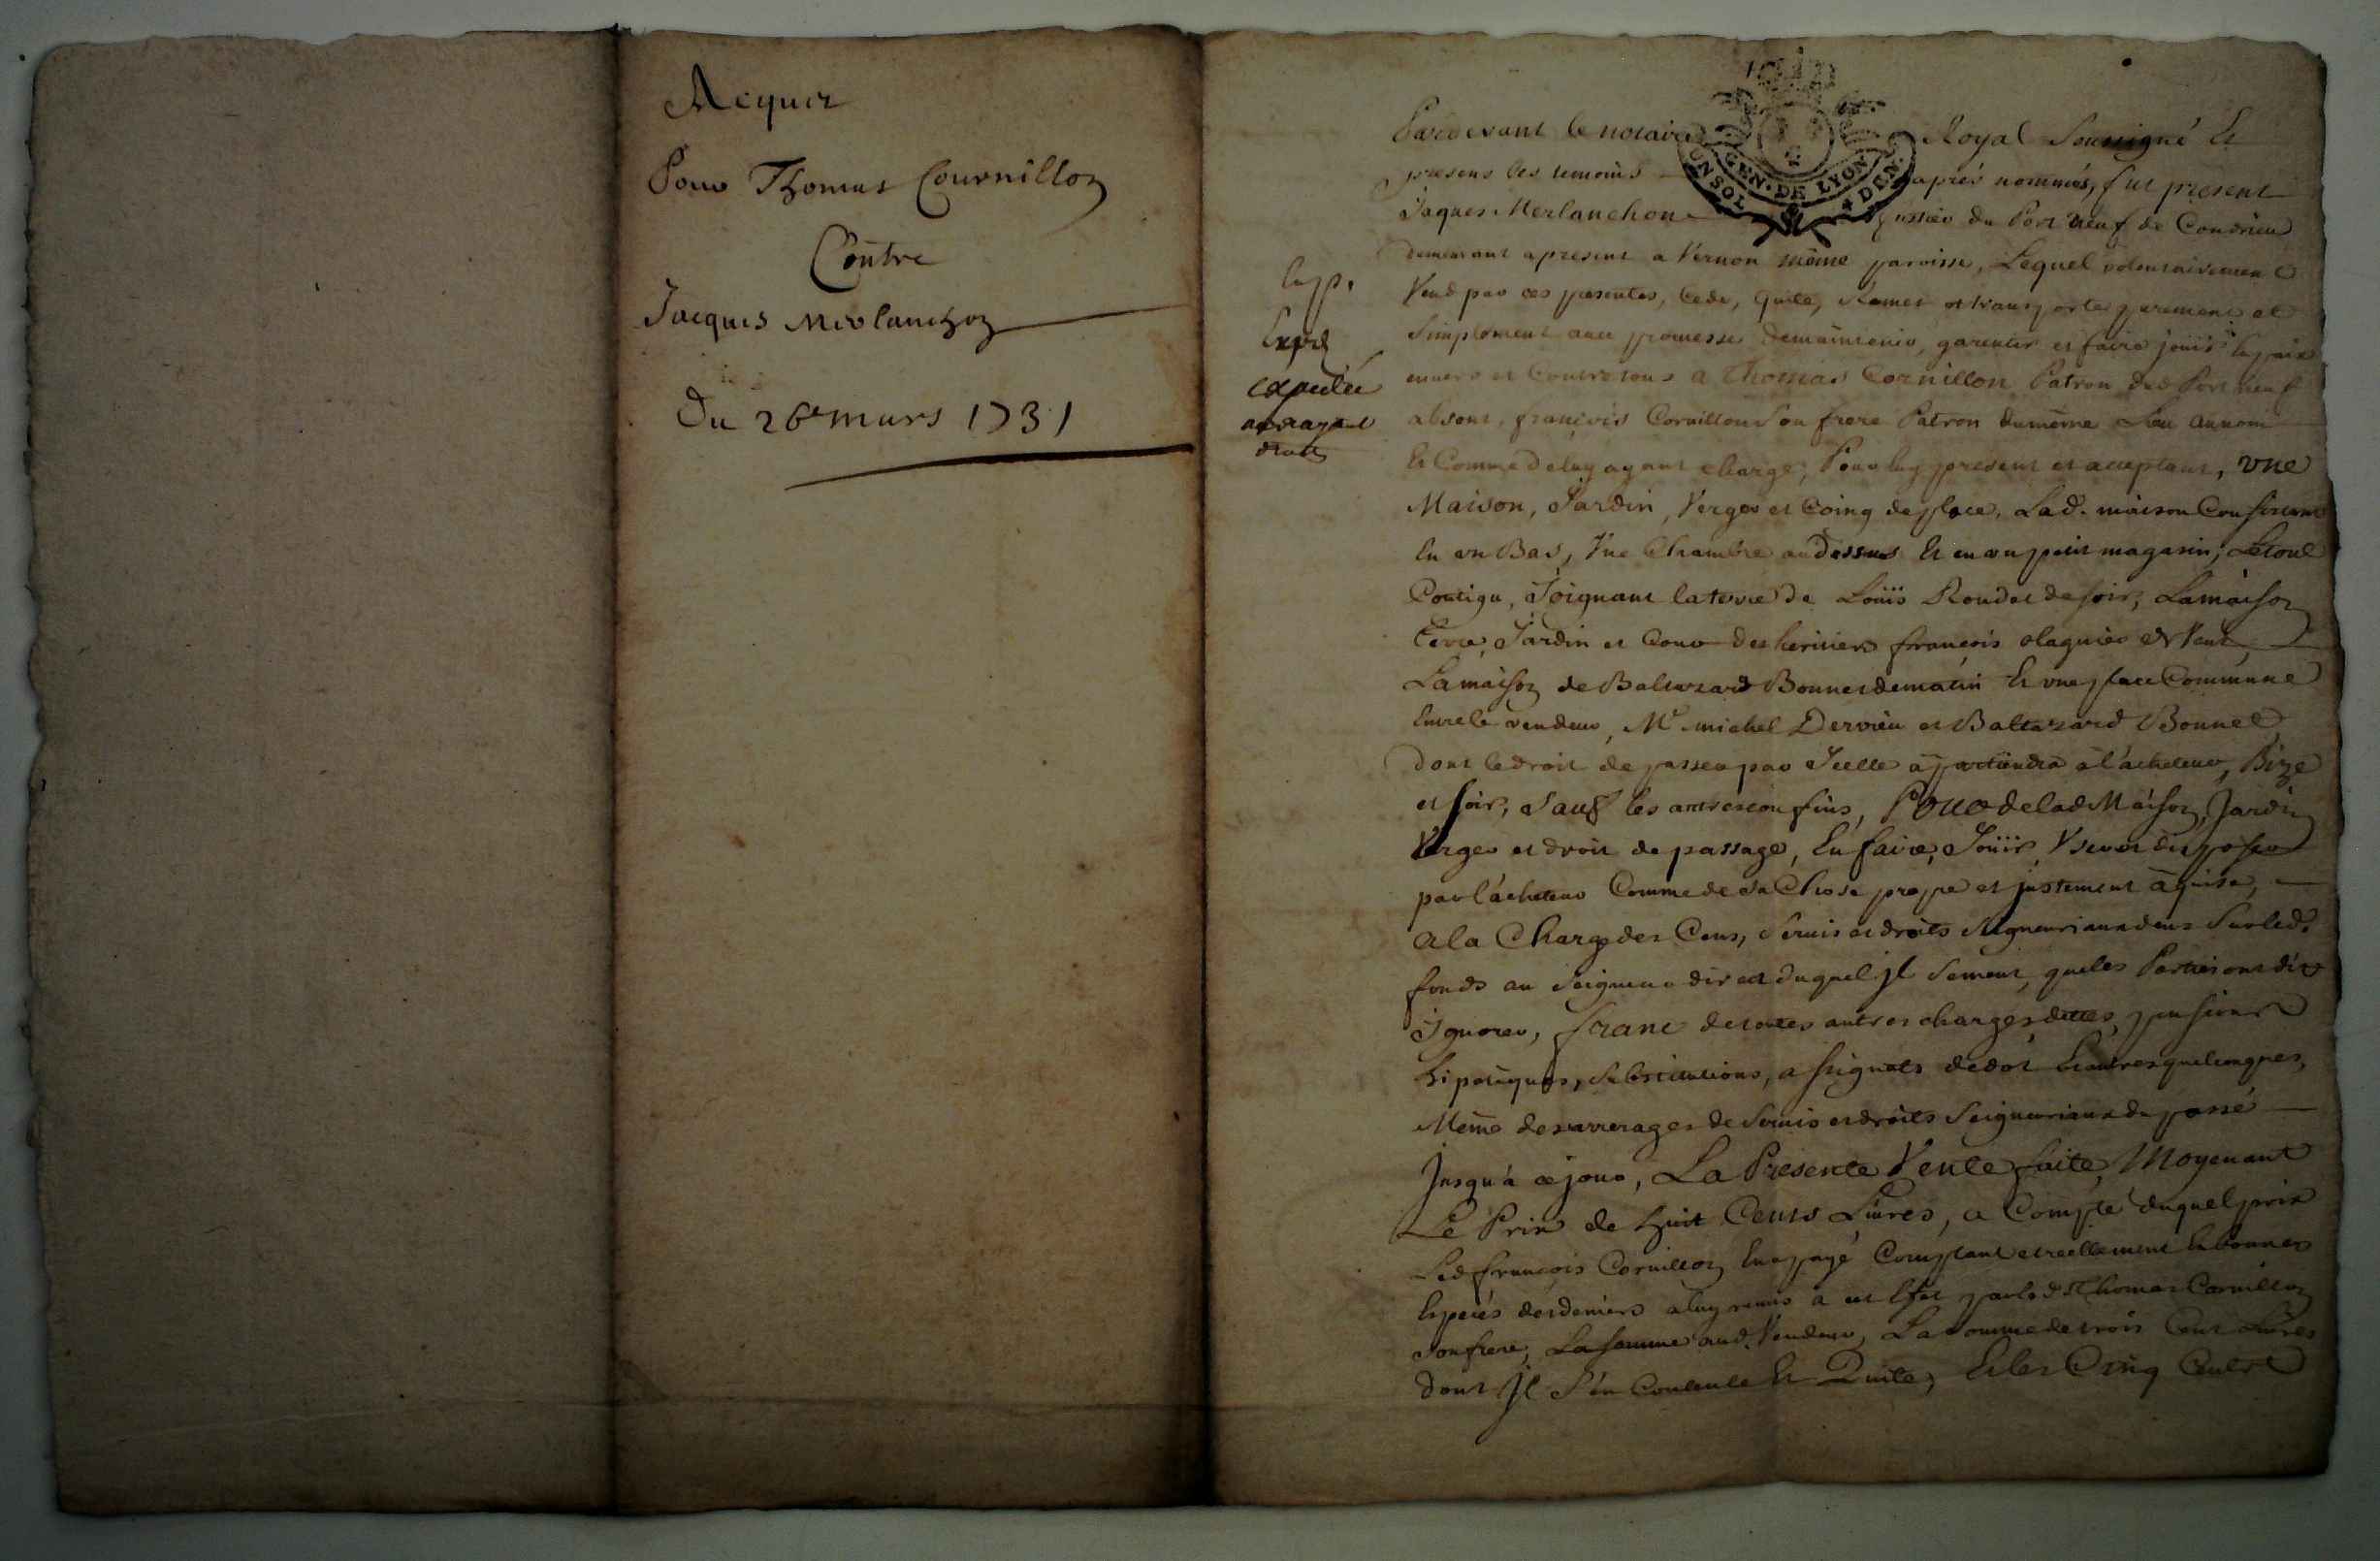 Acquit
Pour Thomas Cournillon
Contre
Jacques Merlanchon
Du 26e mars 1731
Exp.
Expd
expediée
droit
GEN. DE LYON
CONSOL DEN.
Pardevant le notaire Royal Soussigné Et
presens les temoins aprés nommés, fut present
Jaques Merlanchon du Port neuf de Condrieu
demeurant apresent a Vernon même paroisse, Lequel volontairement
Vend par ces presentes, Cede, quite, Remet et transporte purement et
Simplement avec promesse demaintenir, garentir et faire jouir
envers et Contre tous a Thomas Cornillon Patron dud Port neuf
absent, françois Cornillon Son frere Patron dumême Lieu aunom
Et Comme deluy ayant charge, Pour luy present et acceptant, vne
Maison, Jardin, Verger et Coing de place, Lad. maison Consistant
En un Bas, Vne Chambre audessus Et en un petit magasin, Letout
Contigu, Joignant laterre de Loüis Rondet desoir, Lamaison
terre, Jardin et Cour des heritiers françois olagnier de Vent,
Lamaison de Baltazard Bonnet dematin Et vne place Commune
Entre le vendeur, Me michel Dervieu et Baltazard Bonnet
dont ledroit de passer par Icelle apartiendra a l'acheteur, Bize
et soir, Sauf les autres confins, Pour delad Maison, Jardin
Verger et droit de passage, En faire, Joüir, Vser et disposer
par l'acheteur Comme de Sa Chose propre et justement aquise,
A la Charge des Cens, Servis et droits Seigneuriaux deus Surled.
fonds au Seigneur direct duquel jl Semeut, queles Parties ont dit
Ignorer, franc detoutes autres charges, dettes, pensions
hipoteques, Substitutions, assignats dedot Et autres quelconques,
Même des arrerages de Servis et droits Seigneuriaux du passé
Jusqu'à cejour, La Presente Vente faite, Moyenant
Le Prix de huit Cents Livres, a Compte duquel prix
Led françois Cornillon En a payé Comptant et reellement En bonnes
Especes des deniers aluy remis a cet Effet parled Thomas Cornillon
Son frere, La somme aud. Vendeur, La somme de trois Cent Livres
dont jl S'en Contente Et Quite, Et les Cinq Cents